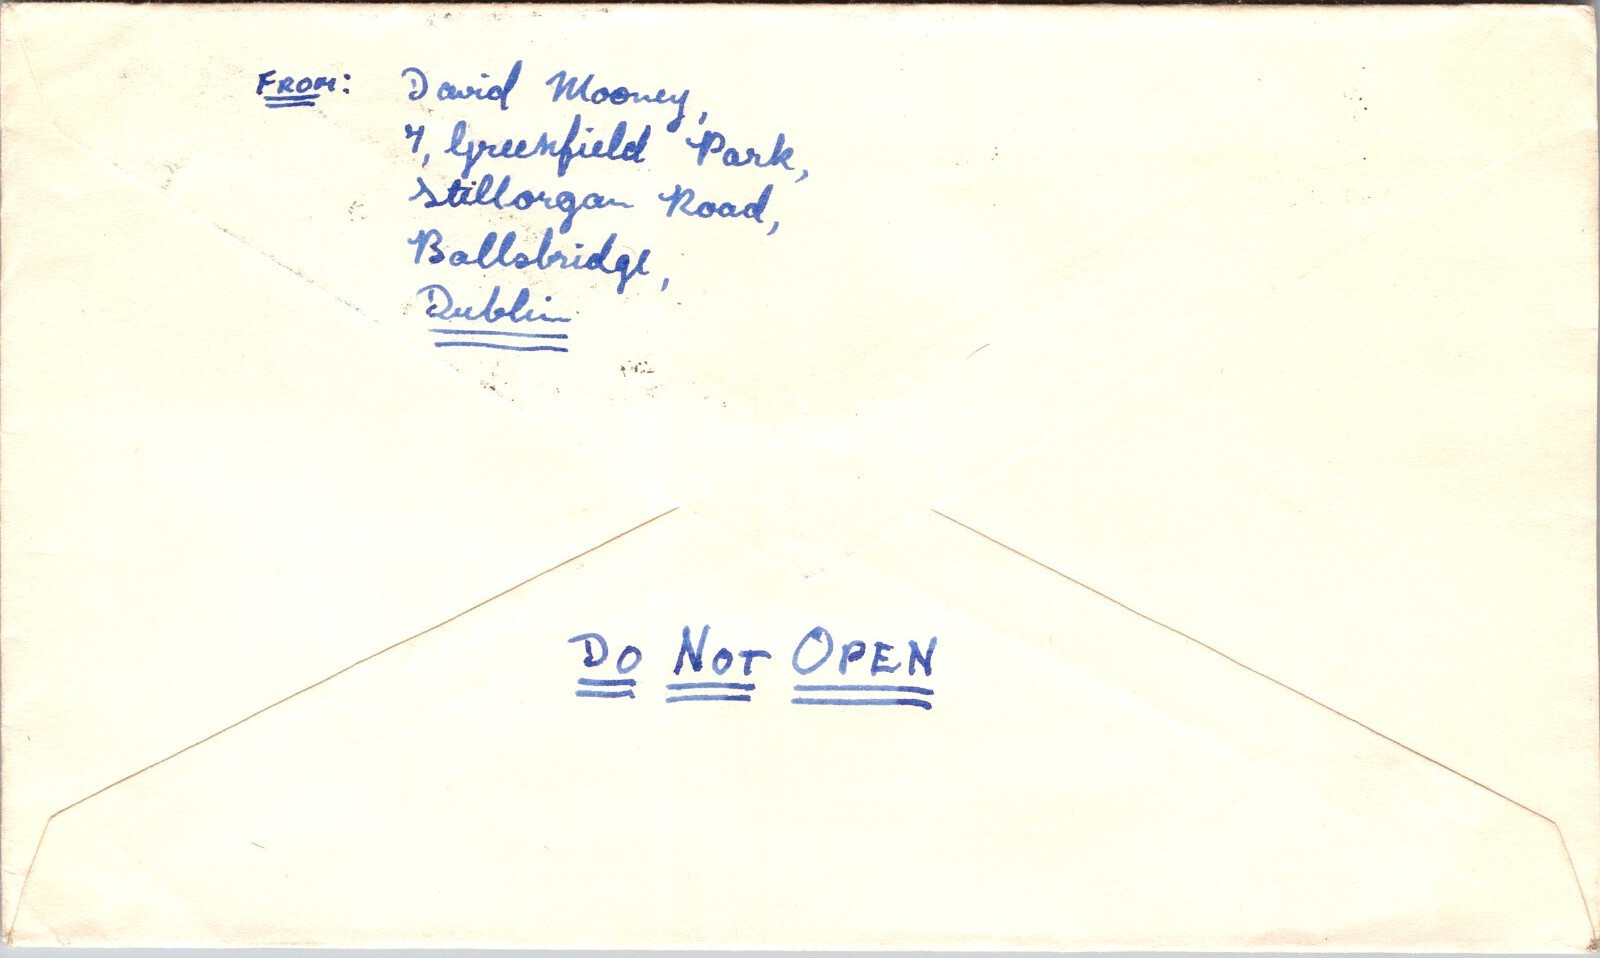 FROM: David Mooney,
7, Greenfield Park,
Stillorgan Road,
Ballsbridge,
Dublin
DO NOT OPEN